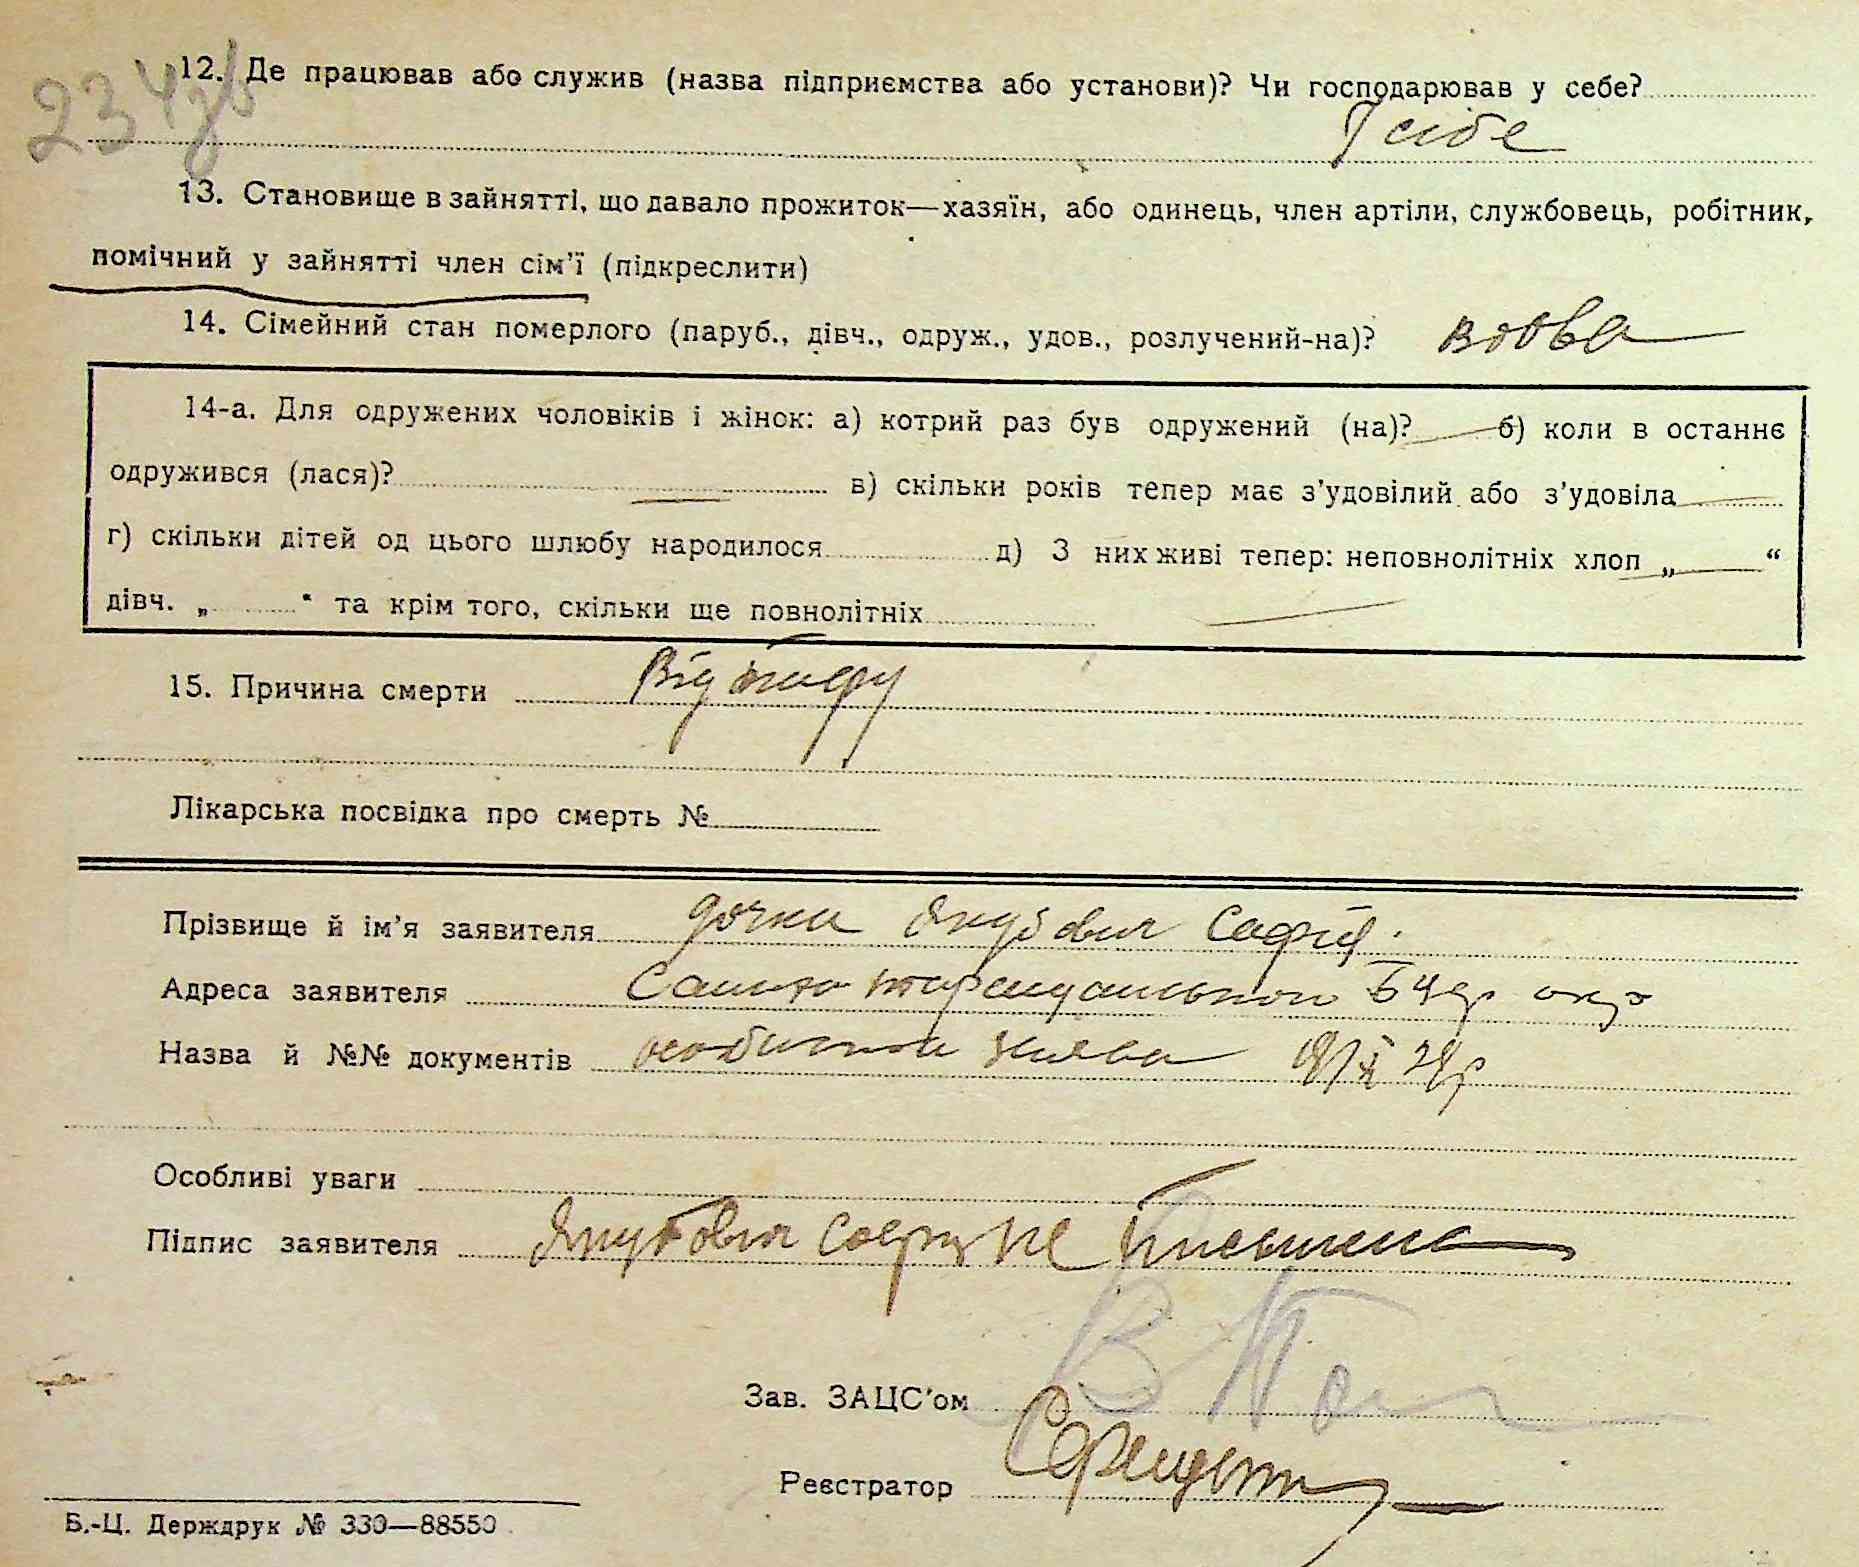 234зв
12. Де працював або служив (назва підприємства або установи)? Чи господарював у себе?
У себе
13. Становище в зайнятті, що давало прожиток—хазяїн, або одинець, член артіли, службовець, робітник,
помічний у зайнятті член сім'ї (підкреслити)
14. Сімейний стан померлого (паруб., дівч., одруж., удов., розлучений-на)? вдова
14-а. Для одружених чоловіків і жінок: а) котрий раз був одружений (на)? б) коли в останнє
одружився (лася)? в) скільки років тепер має з'удовілий або з'удовіла
г) скільки дітей од цього шлюбу народилося д) З них живі тепер: неповнолітніх хлоп „ “
дівч. „ “ та крім того, скільки ще повнолітніх
15. Причина смерти Від тифу
Лікарська посвідка про смерть №
Прізвище й ім'я заявителя дочка Якубович Софія.
Адреса заявителя Б Црк окр
Назва й №№ документів особиста заява
Особливі уваги
Підпис заявителя Якубович Софія не письмена
Зав. ЗАЦС'ом
Реєстратор
Б.-Ц. Держдрук № 330—88550